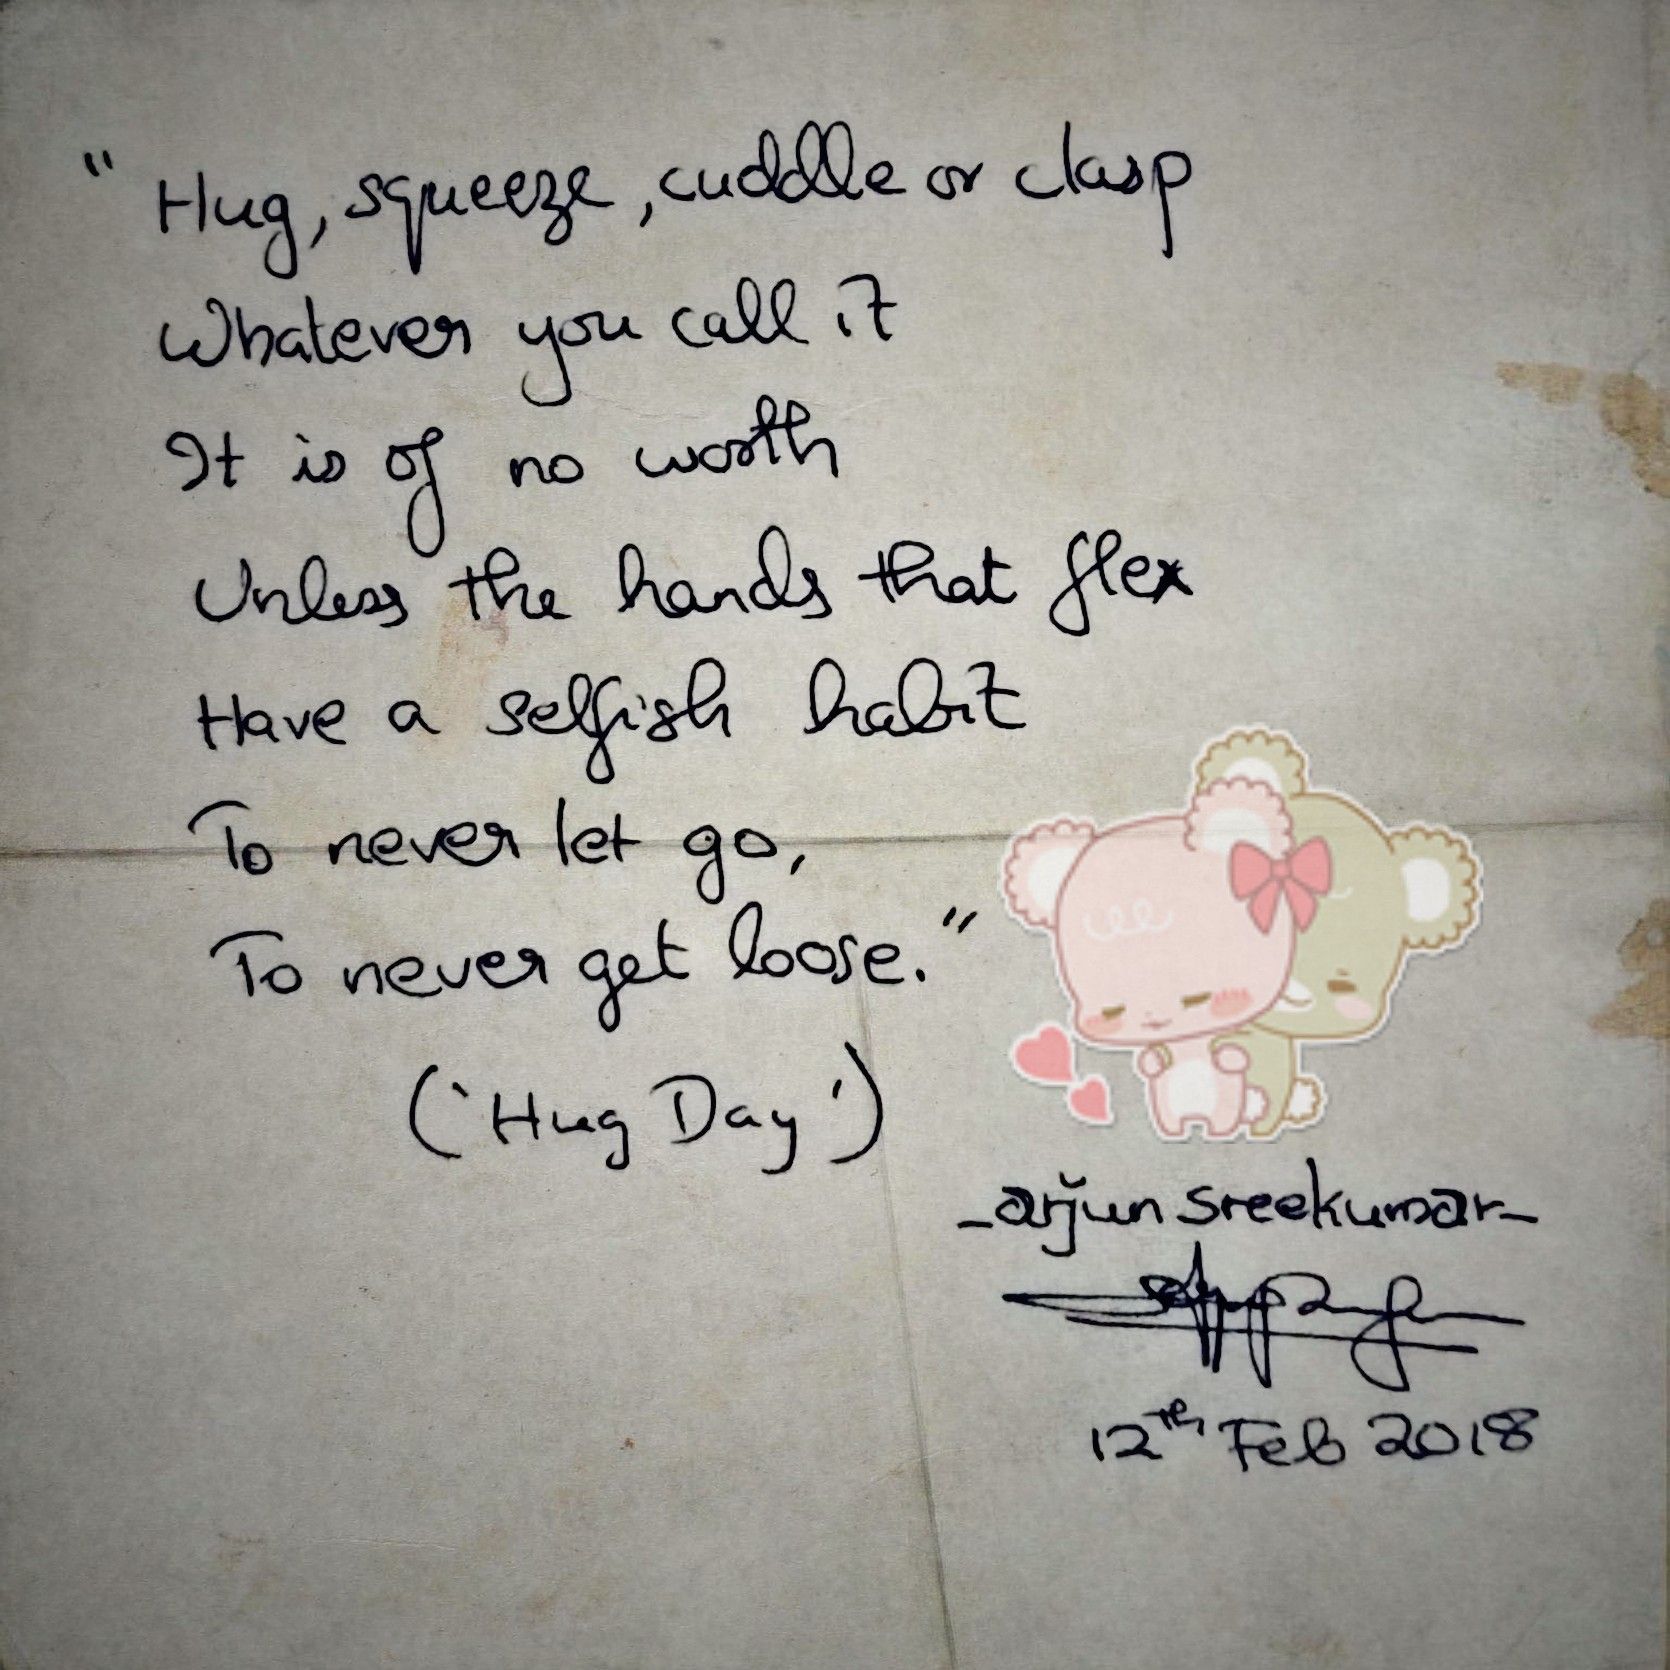 " Hug, squeeze, cuddle or clasp
Whatever you call it
It is of no worth
Unless the hands that flex
Have a selfish habit
To never let go,
To never get loose."
('Hug Day')
-arjun sreekumar-
12th Feb 2018